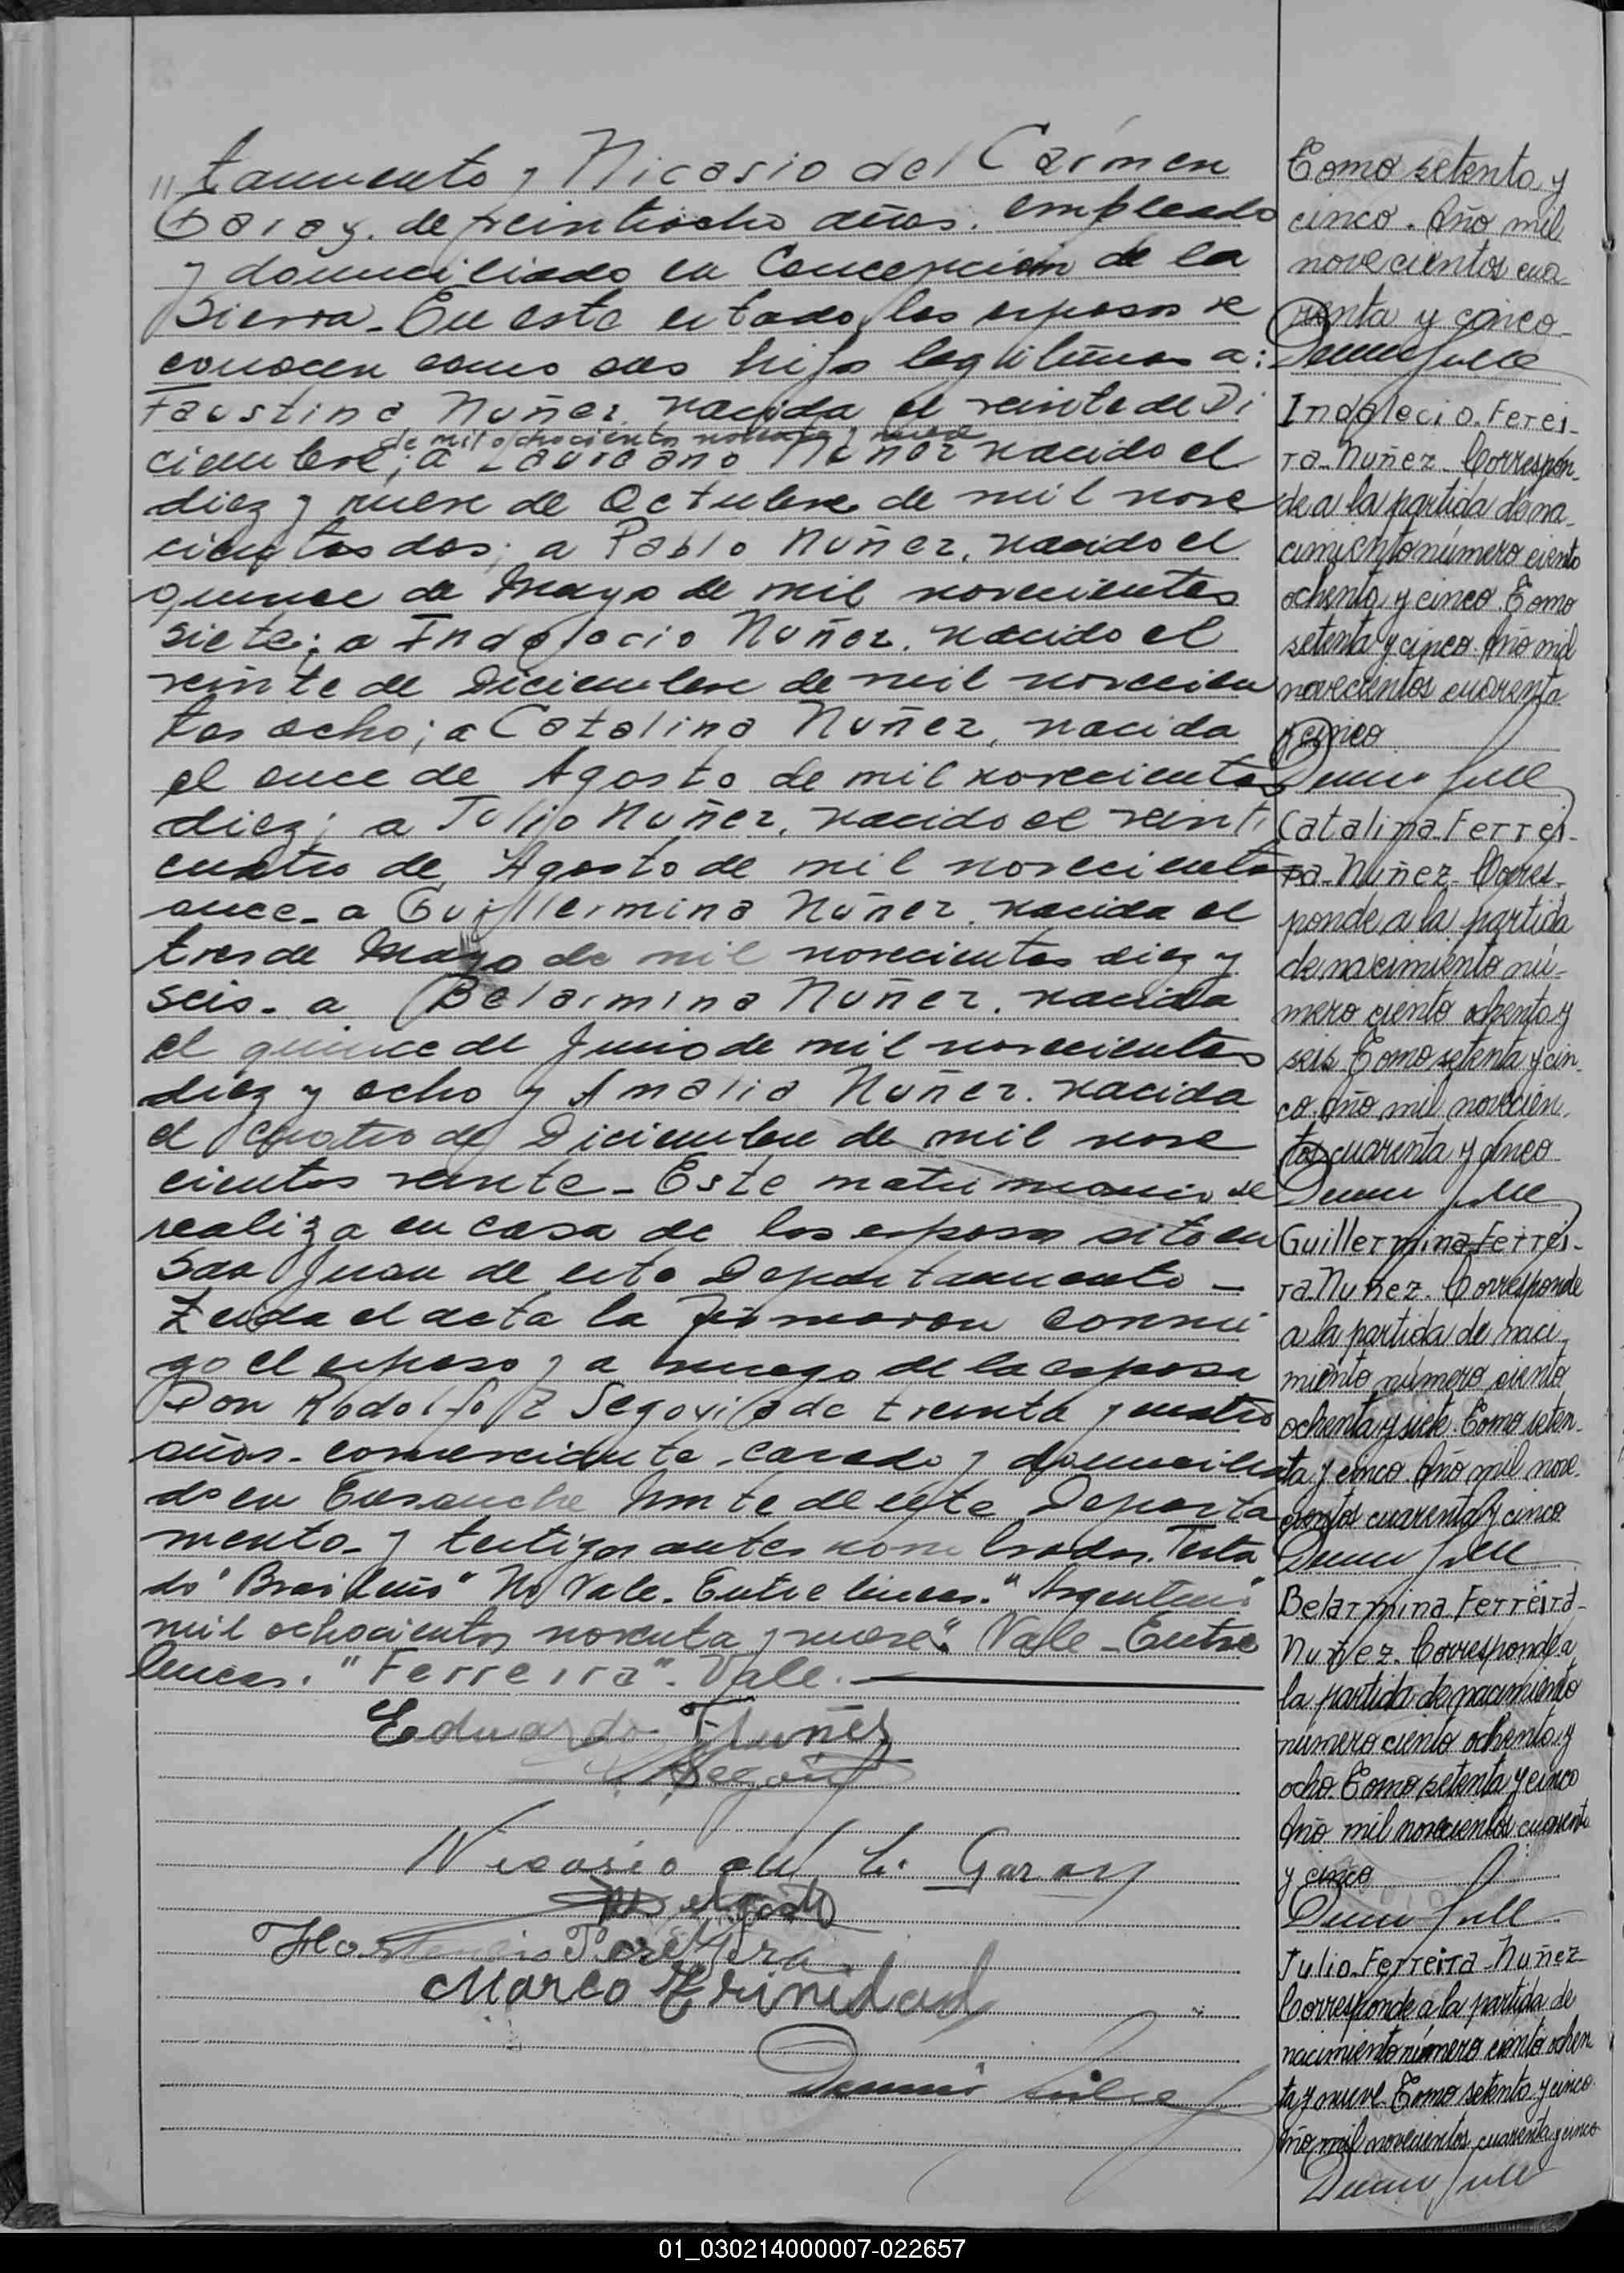 "tamento y Nicasio del Cármen
Garay. de veintiocho años. empleado
y domiciliado en Concepción de la
Sierra_ En este estado los esposos re
conocen como sus hijos legitimos a:
Faustina Nuñez nacida el veinte de Di
de mil ochocientos noventa y nueve
ciembre; a Laureano Nuñez nacido el
diez y nueve de Octubre de mil nove
cientos dos; a Pablo Nuñez, nacido el
quince de Mayo de mil novecientos
siete; a Indalecio Nuñez. nacido el
veinte de Diciembre de mil novecien
tos ocho; a Catalina Nuñez, nacida
el once de Agosto de mil novecientos
diez; a Julio Nuñez, nacido el veinti
cuatro de Agosto de mil novecientos
once_ a Guillermina Nuñez. nacida el
tres de Mayo de mil novecientos diez y
seis_ a Belarmina Nuñez. nacida
el quince de Junio de mil novecientos
diez y ocho y Amalia Nuñez. nacida
el cuatro de Diciembre de mil nove
cientos veinte_ Este matrimonio se
realiza en casa de los esposos sito en
San Juan de este Departamento_
Leida el acta la firmaron conmi
go el esposo y a ruego de la esposa
Don Rodolfo Z Segovia de treinta y cuatro
años_ comerciante_ casado y domicilia
do en Ensanche Norte de este Departa
mento_ y testigos antes nombrados. Testa
do "Brasileño" No Vale_ Entre lineas. "Argentino"
mil ochocientos noventa y nueve". Vale_Entre
lineas. "Ferreira". Vale.
Eduardo F Nuñez
R Z Segovia
Nicasio del C. Garay
Delgado
Hortencio Pereyra
Marco Trinidad
Tomo setenta y
cinco. Año mil
novecientos cua_
renta y cinco_
Indalecio. Ferei_
ra_Nuñez_ Correspon_
de a la partida de na_
cimiento número ciento
ochenta y cinco. Tomo
setenta y cinco. Año mil
novecientos cuarenta
y cinco
Catalina_Ferrei_
ra_Nuñez_ Corres_
ponde a la partida
de nacimiento nú_
mero ciento ochenta y
seis. Tomo setenta y cin_
co. Año mil novecien_
tos cuarenta y cinco
Guillermina Ferrei_
ra_Nuñez_ Corresponde
a la partida de naci_
miento número ciento
ochenta y siete. Tomo seten_
ta y cinco. Año mil nove_
cientos cuarenta y cinco
Belarmina Ferreira_
Nuñez_ Corresponde a
la partida de nacimiento
número ciento ochenta y
ocho. Tomo setenta y cinco
Año mil novecientos cuarenta
y cinco
Julio_Ferreira_Nuñez_
Corresponde a la partida de
nacimiento número ciento ochen
ta y nueve_ Tomo setenta y cinco_
Año mil novecientos cuarenta y cinco
01_030214000007-022657